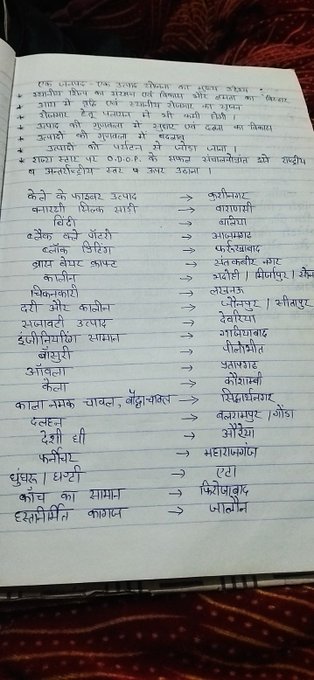 एक जनपद - एक उत्पाद योजना का मुख्य उद्देश्य :
* स्थानीय शिल्प का संरक्षण एवं विकास और क्षमता का विस्तार
* आय में वृद्धि एवं स्थानीय रोजगार का सृजन
* रोजगार हेतु पलायन में भी कमी होगी।
* उत्पाद की गुणवत्ता में सुधार एवं दक्षता का विकास
* उत्पादों की गुणवत्ता में बदलाव
* उत्पादों को पर्यटन से जोड़ा जाना।
* राज्य स्तर पर O.D.O.P. के सफल संचालनोपरांत इसे राष्ट्रीय
व अन्तर्राष्ट्रीय स्तर पर ऊपर उठाना।
केले के फाइबर उत्पाद → कुशीनगर
बनारसी सिल्क साड़ी → वाराणसी
बिंदी → बलिया
ब्लैक क्ले पॉटरी → आजमगढ़
ब्लॉक प्रिंटिंग → फर्रुखाबाद
ब्रास वेयर क्राफ्ट → संतकबीर नगर
कालीन → भदोही | मिर्जापुर |
चिकनकारी → लखनऊ
दरी और कालीन → जौनपुर | सीतापुर
सजावटी उत्पाद → देवरिया
इंजीनियरिंग सामान → गाजियाबाद
बाँसुरी → पीलीभीत
आँवला → प्रतापगढ़
केला → कौशाम्बी
काला नमक चावल, → सिद्धार्थनगर
दलहन → बलरामपुर | गोंडा
देशी घी → औरैया
फर्नीचर → महाराजगंज
घुंघरू | घण्टी → एटा
काँच का सामान → फिरोजाबाद
हस्तनिर्मित कागज → जालौन